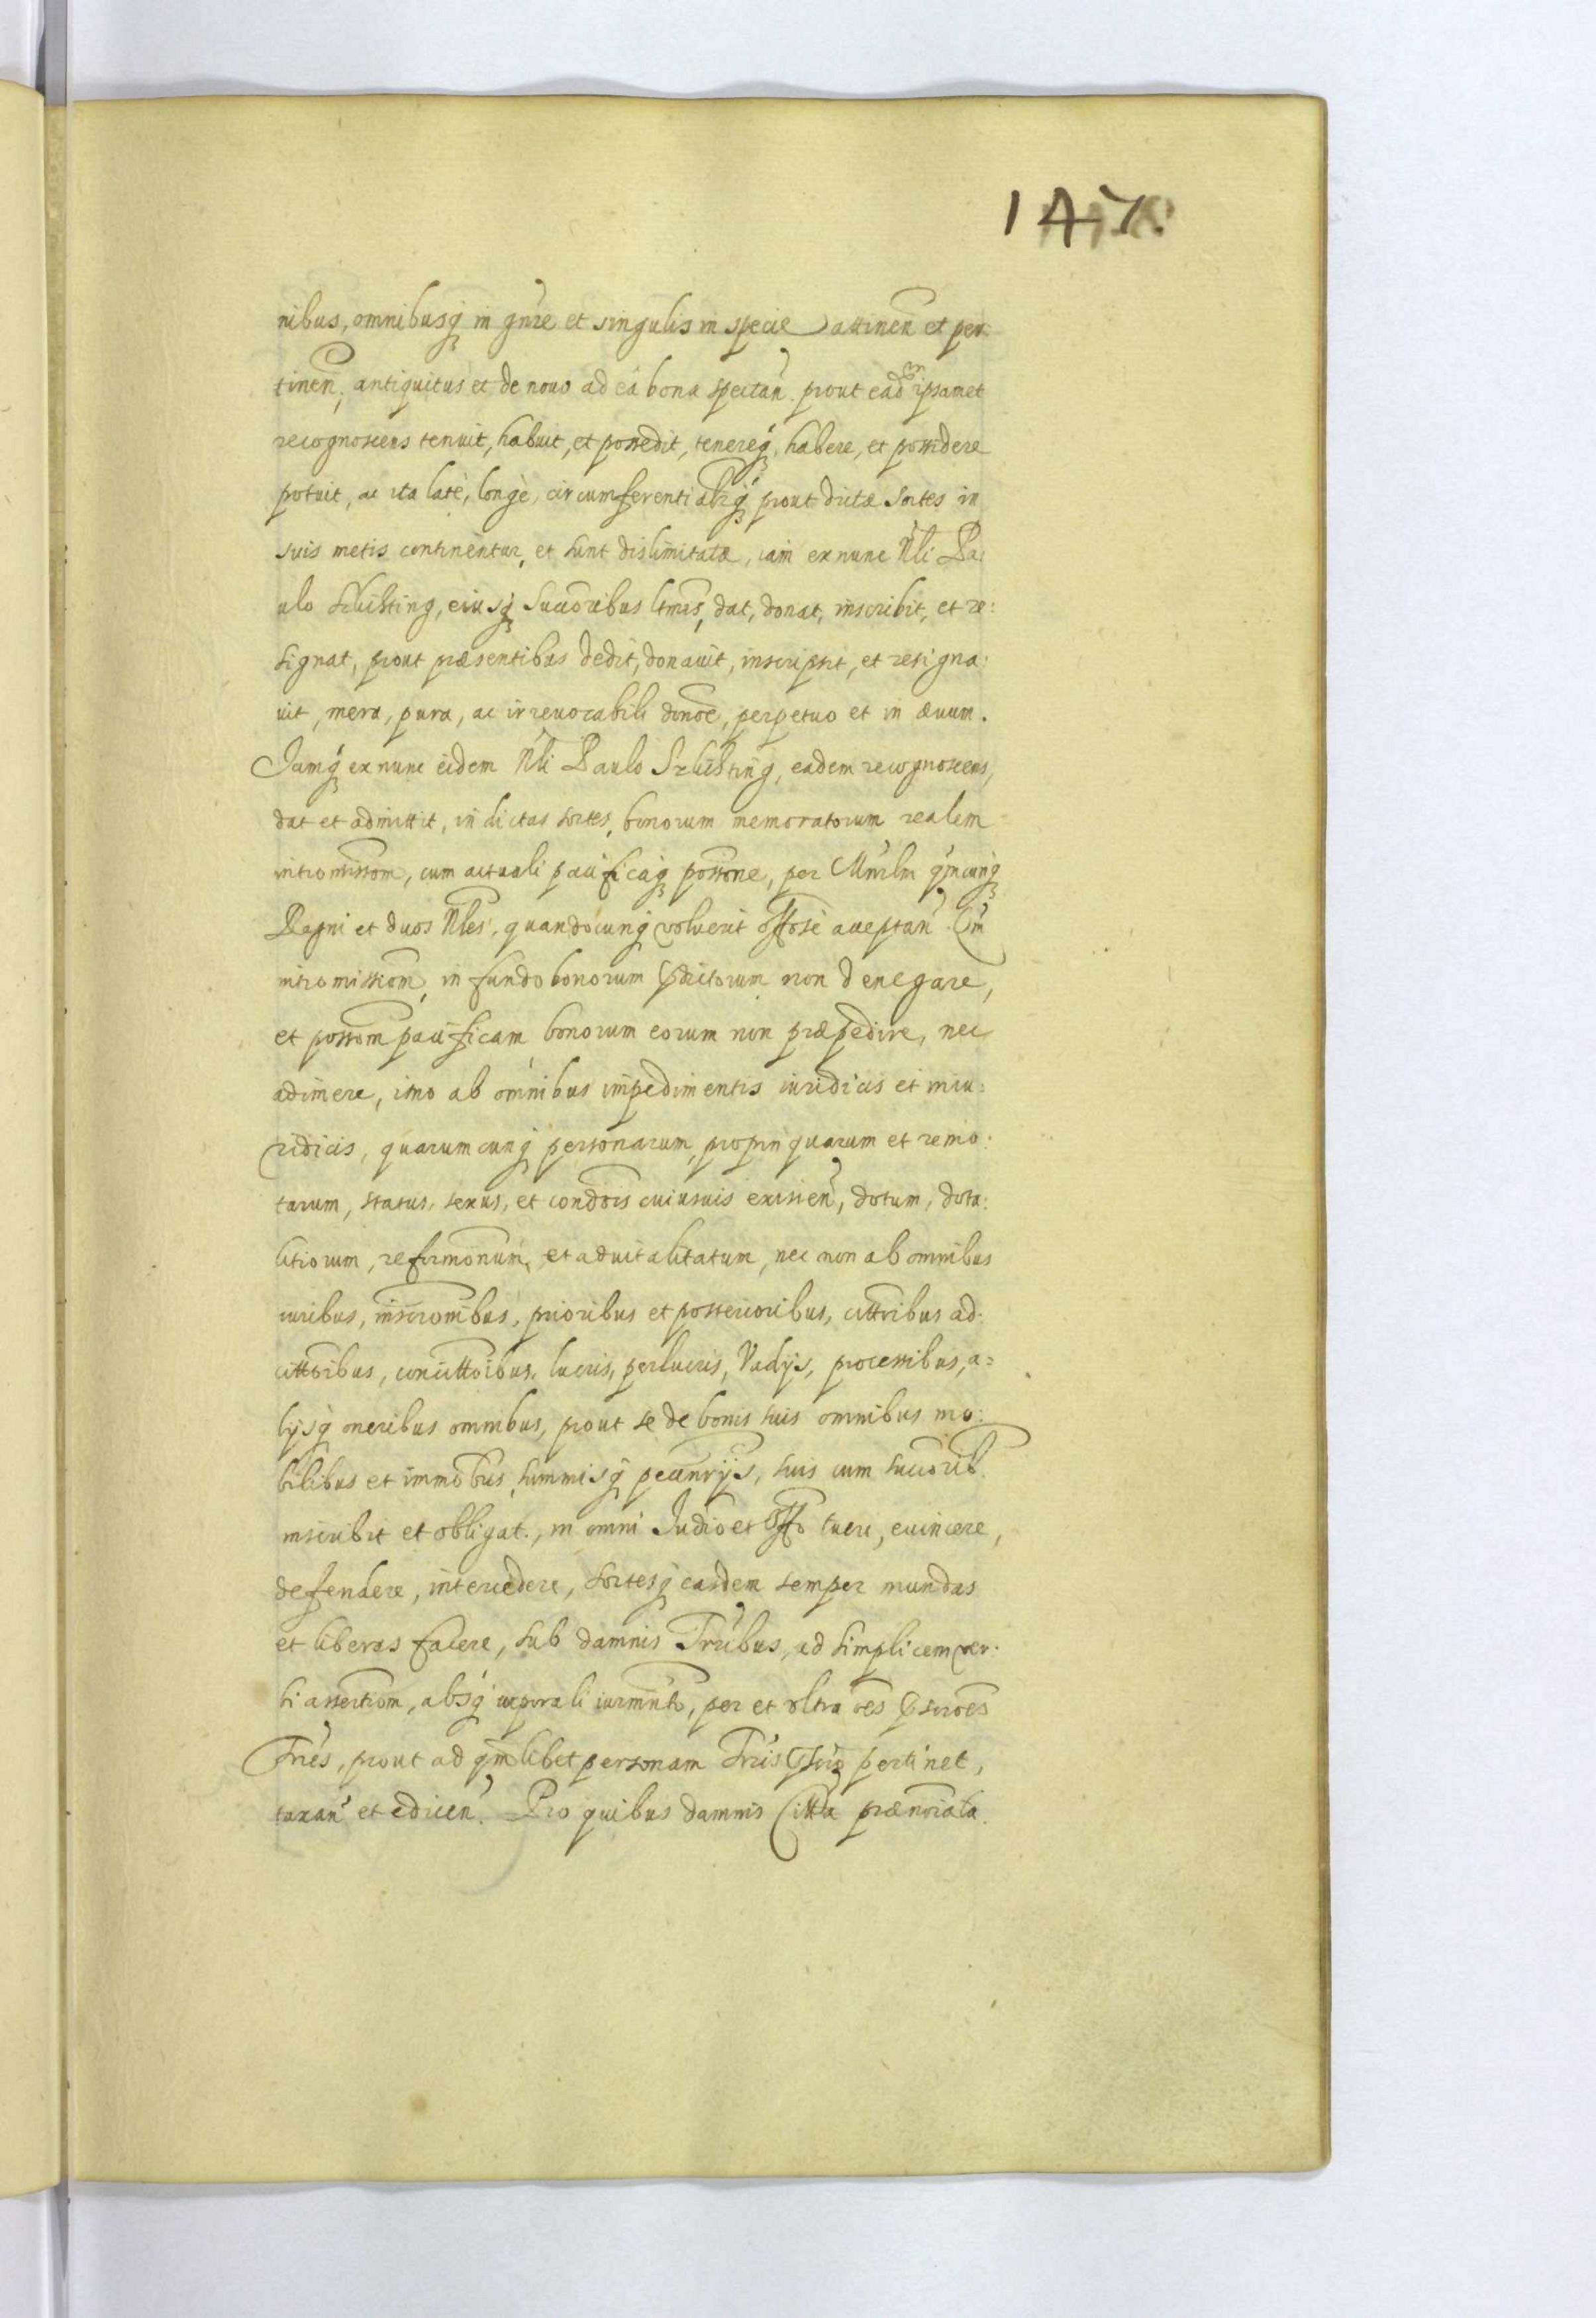 147.
nibus, omnibusq3 in gn̄re et singulis in specie attinen̄ et per:
tinen̄, antiquitus et de nouo ad ea bona spectan̄. prout ead ipsamet
recognoscens tenuit, habuit, et possedit, tenereq3, habere, et possidere
potuit, ac ita latè, longè, circumferentialr̄q3 prout dictæ sortes in
suis metis continentur, et sunt dislimitatæ, iam ex nunc Nl̄i Pa:
ulo Szlichting, eiusq3 Succoribus ltm̄is, dat, donat, inscribit, et re:
signat, prout præsentibus dedit, donauit, inscripsit, et resigna:
uit, mera, pura, ac irreuocabili dōnoe, perpetuo et in æuum.
Iamq3 ex nunc eidem Nl̄i Paulo Szlichting, eadem recognoscens,
dat et admittit, in dictas sortes, bonorum memoratorum realem
intromissom̄, cum actuali pacificaq3 possone, per Mn̄rlm qm̄cunq3
Regni et duos Nl̄es, quandocunq3 voluerit offosè acceptan̄. Cm̄
intromissiom̄, in fundo bonorum p̄dictorum non denegare,
et possom̄ pacificam bonorum eorum non præpedire, nec
adimere, imo ab omnibus impedimentis iuridicis et iniu:
ridicis, quarumcunq3 personarum, propinquarum et remo:
tarum, status, sexus, et condōis cuiusuis existen̄, dotum, dota:
litiorum, reformōnum, et aduitalitatum, nec non ab omnibus
iuribus, inscrōnibus, prioribus et posterioribus, cittōibus ad:
cittōibus, concittōibus, lucris, perlucris, Vadijs, processibus, a=
lijsq3 oneribus omnibus, prout se de bonis suis omnibus mo:
bilibus et immōbus, summisq3 pecūnrijs, suis cum succorib.
inscribit et obligat, in omni Iudīo et Offo tueri, euincere,
defendere, intercedere, sortesq3 easdem semper mundas
et liberas facere, sub damnis Trr̄ibus, ad simplicem ver:
bi assertiom̄, absq3 corporali iurmn̄to, per et ultra oēs p̄scrōes
Trr̄es, prout ad qm̄libet personam Trr̄is p̄scrō pertinet,
taxan̄ et edicen̄. Pro quibus damnis Citta prænoīata